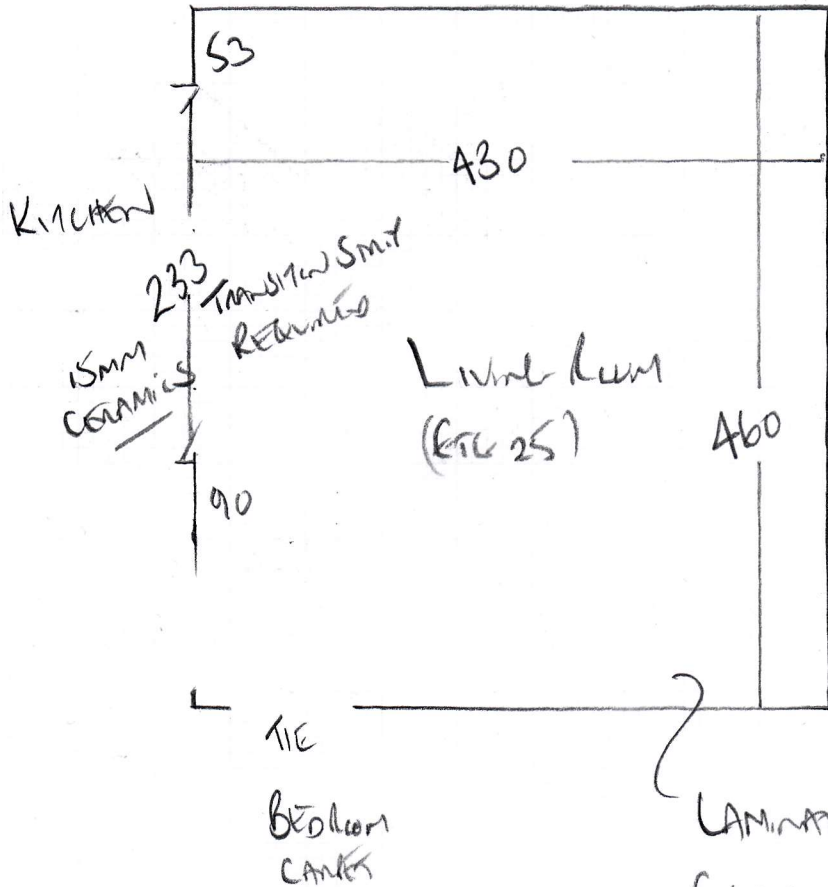 53
430
KITCHEN
233
TRANSITION STRIP
REQUIRED
15MM
CERAMICS
LIVING ROOM
25)
460
90
TIE
BEDROOM
CARPET
LAMINA